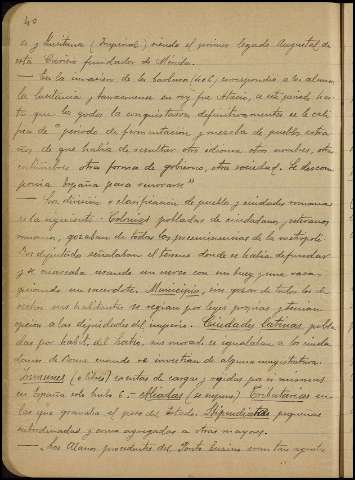 40
es y Lusitana (Imperial) siendo el primer legado Augustal de
esta Carisio fundador de Mérida.
— En la invasión de los bárbaros (406) correspondio a los alanos
la Lusitania y tarraconense su rey fue Atacio, a este periodo has-
ta que los godos la conquistaron definitivamente se le cali-
fica de "periodo de fermentación y mezcla de pueblos extra-
ños de que habia de resultar otro idioma otros nombres, otras
costumbres otra forma de gobierno, otra sociedad. Se descom-
ponia España para renovarse"
— La división o clasificación de pueblos y ciudades romanas
es la siguiente: Colonias pobladas de ciudadanos y veteranos
romanos, gozaban de todas las preeminencias de la metropoli
Los diputados señalaban el terreno donde se habia de fundar
y se marcaba usando un surco con un buey y una vaca
guiando un sacerdote. Municipio, sin gozar de todos los de-
rechos sus habitantes se regian por leyes propias y tenian
opcion a las dignidades del imperio. Ciudades latinas pobla-
das por habit. del Lacio, sus morad. se igualaban a los ciuda-
danos de Roma cuando se investian de alguna magistratura.
Inmunes (o libres) exentas de cargas y regidas por si mismas
en España solo hubo 6.— Aliadas (se supone) Tributarias en
las que gravaba el peso del Estado. Stipendiatas pequeñas
subordinadas y como agregadas a otras mayores.
— Los Alanos procedentes del Ponto Euxino eran tan